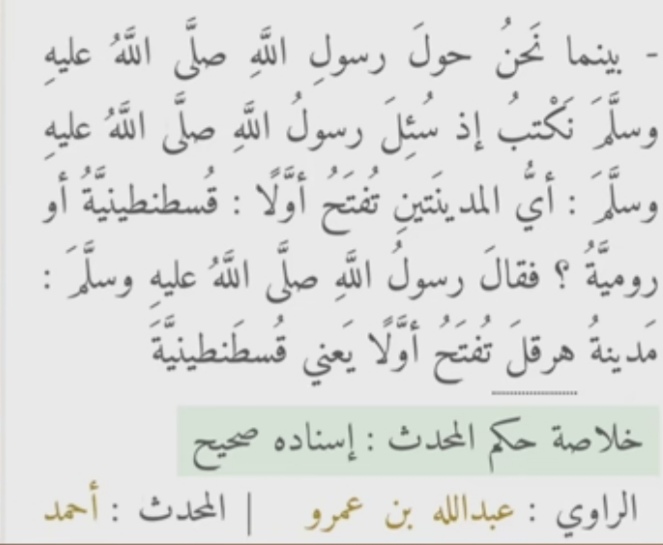 - بينما نَحنُ حولَ رسولِ اللَّهِ صلَّى اللَّهُ عليهِ
وسلَّمَ نَكْتبُ إذ سُئِلَ رسولُ اللَّهِ صلَّى اللَّهُ عليهِ
وسلَّمَ : أيُّ المدينَتينِ تُفتَحُ أوَّلًا : قُسطنطينيَّةُ أو
روميَّةُ ؟ فقالَ رسولُ اللَّهِ صلَّى اللَّهُ عليهِ وسلَّمَ :
مَدينةُ هرقلَ تُفتَحُ أوَّلًا يَعني قُسطَنطينيَّةَ
خلاصة حكم المحدث : إسناده صحيح
الراوي : عبدالله بن عمرو | المحدث : أحمد